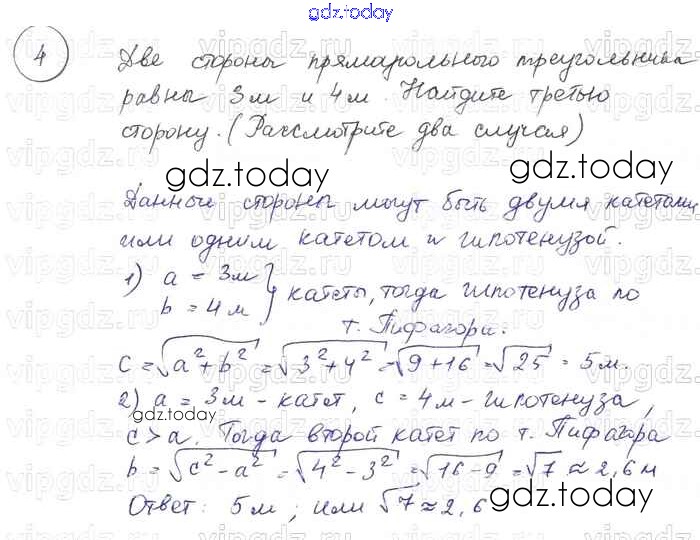 gdz.today
4 Две стороны прямоугольного треугольника
равны 3 м и 4 м. Найдите третью
сторону. (Рассмотрите два случая)
gdz.today gdz.today
Данные стороны могут быть двумя катетами
или одним катетом и гипотенузой.
1) a = 3 м
b = 4 м } катеты, тогда гипотенуза по
т. Пифагора:
c = √(a² + b²) = √(3² + 4²) = √(9 + 16) = √25 = 5 м.
2) a = 3 м - катет, c = 4 м - гипотенуза,
gdz.today gdz.today
c > a. Тогда второй катет по т. Пифагора
b = √(c² - a²) = √(4² - 3²) = √(16 - 9) = √7 ≈ 2,6 м
Ответ: 5 м; или √7 ≈ 2,6
gdz.today gdz.today